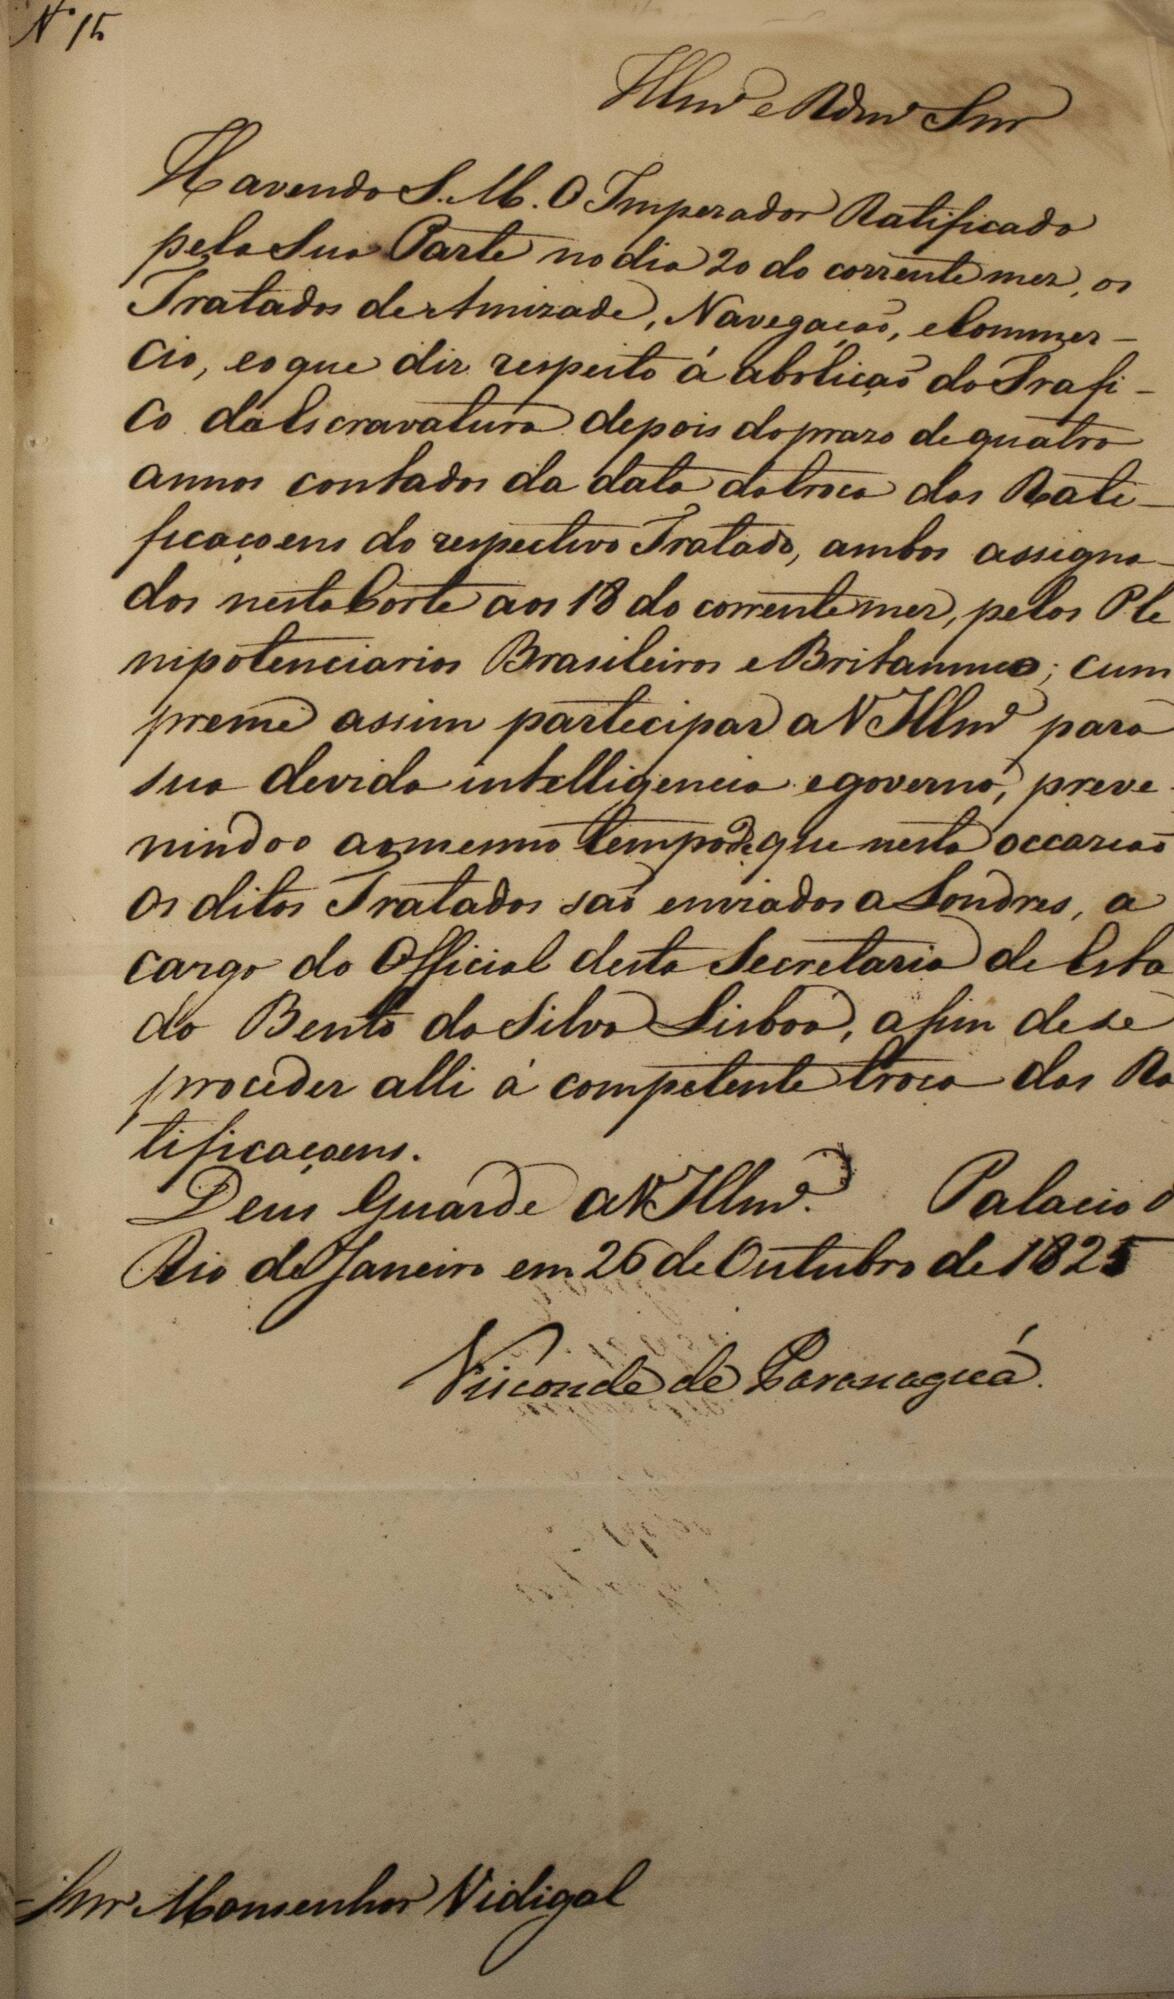 Nº 15
Illmº e Rdmº Snr
Havendo S. M. O Imperador Ratificado
pela Sua Parte no dia 20 do corrente mez, os
Tratados de Amizade, Navegação, e Commer-
cio, e o que diz respeito á abolição do Trafi-
co da Escravatura depois do prazo de quatro
annos contados da data da troca das Rati-
ficaçoens do respectivo Tratado, ambos assigna-
dos nesta Corte aos 18 do corrente mez, pelos Ple
nipotenciarios Brasileiros e Britannico; cum
preme assim partecipar a V Illmª para
sua devida intelligencia e governo, preve-
nindo o ao mesmo tempo de que nesta occazião
os ditos Tratados são enviados a Londres, a
cargo do Official desta Secretaria de Esta
do Bento da Silva Lisboa, afim de se
proceder alli á competente troca das Ra
tificaçoens.
Deus Guarde a V. Illmª. Palacio d
Rio de Janeiro em 26 de Outubro de 1825
Visconde de Paranaguá.
Snr Monsenhor Vidigal